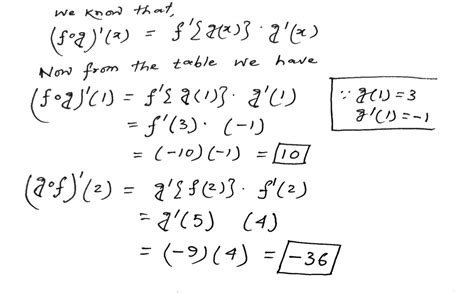 We know that,
(f∘g)'(x) = f'{g(x)} · g'(x)
Now from the table we have
(f∘g)'(1) = f'{g(1)} · g'(1)
∵ g(1) = 3
g'(1) = -1
= f'(3) · (-1)
= (-10)(-1) = 10
(g∘f)'(2) = g'{f(2)} · f'(2)
= g'(5) (4)
= (-9)(4) = -36